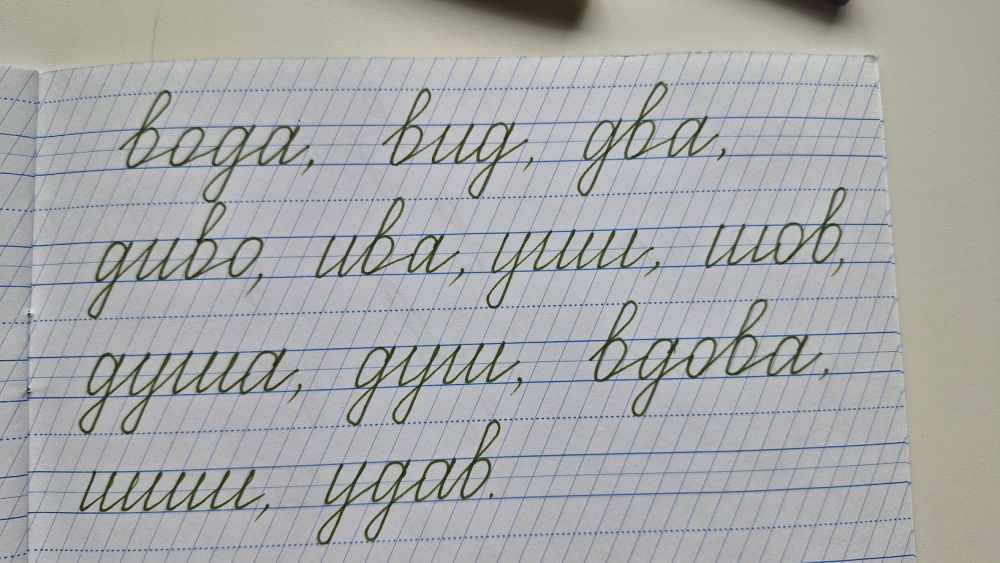 вода, вид, два,
диво, ива, уши, шов,
душа, душ, вдова,
шиши, удав.